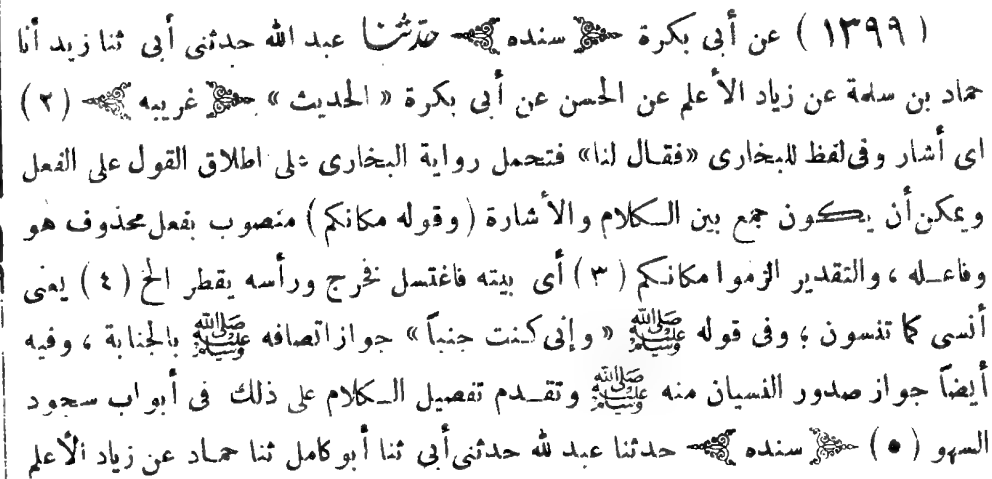 ( ١٣٩٩ ) عن أبى بكرة ﴿ سنده ﴾ حدّثنا عبد الله حدثنى أبى ثنا زيد أنا
حماد بن سلمة عن زياد الأعلم عن الحسن عن أبى بكرة « الحديث » ﴿ غريبه ﴾ (٢)
اى أشار وفى لفظ للبخارى «فقال لنا» فتحمل رواية البخارى على اطلاق القول على الفعل
ويمكن أن يكون جمع بين الكلام والأشارة ( وقوله مكانكم ) منصوب بفعل محذوف هو
وفاعله ، والتقدير الزموا مكانكم (٣) أى بيته فاغتسل فخرج ورأسه يقطر الخ (٤) يعنى
أنسى كما تنسون ؛ وفى قوله ﷺ « وإنى كنت جنباً » جواز اتصافه ﷺ بالجنابة ، وفيه
أيضاً جواز صدور النسيان منه ﷺ وتقدم تفصيل الكلام على ذلك فى أبواب سجود
السهو (٥) ﴿ سنده ﴾ حدثنا عبد لله حدثنى أبى ثنا أبو كامل ثنا حماد عن زياد الأعلم